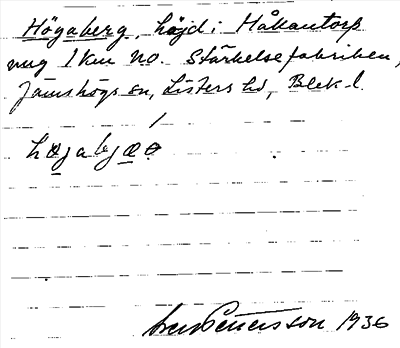 Högaberg, höjd i Håkantorp
nug 1 km NO. Stärkelsefabriken,
Jämshögs sn, Listers hd, Blek. l.
høgabjæ
Pettersson 1936